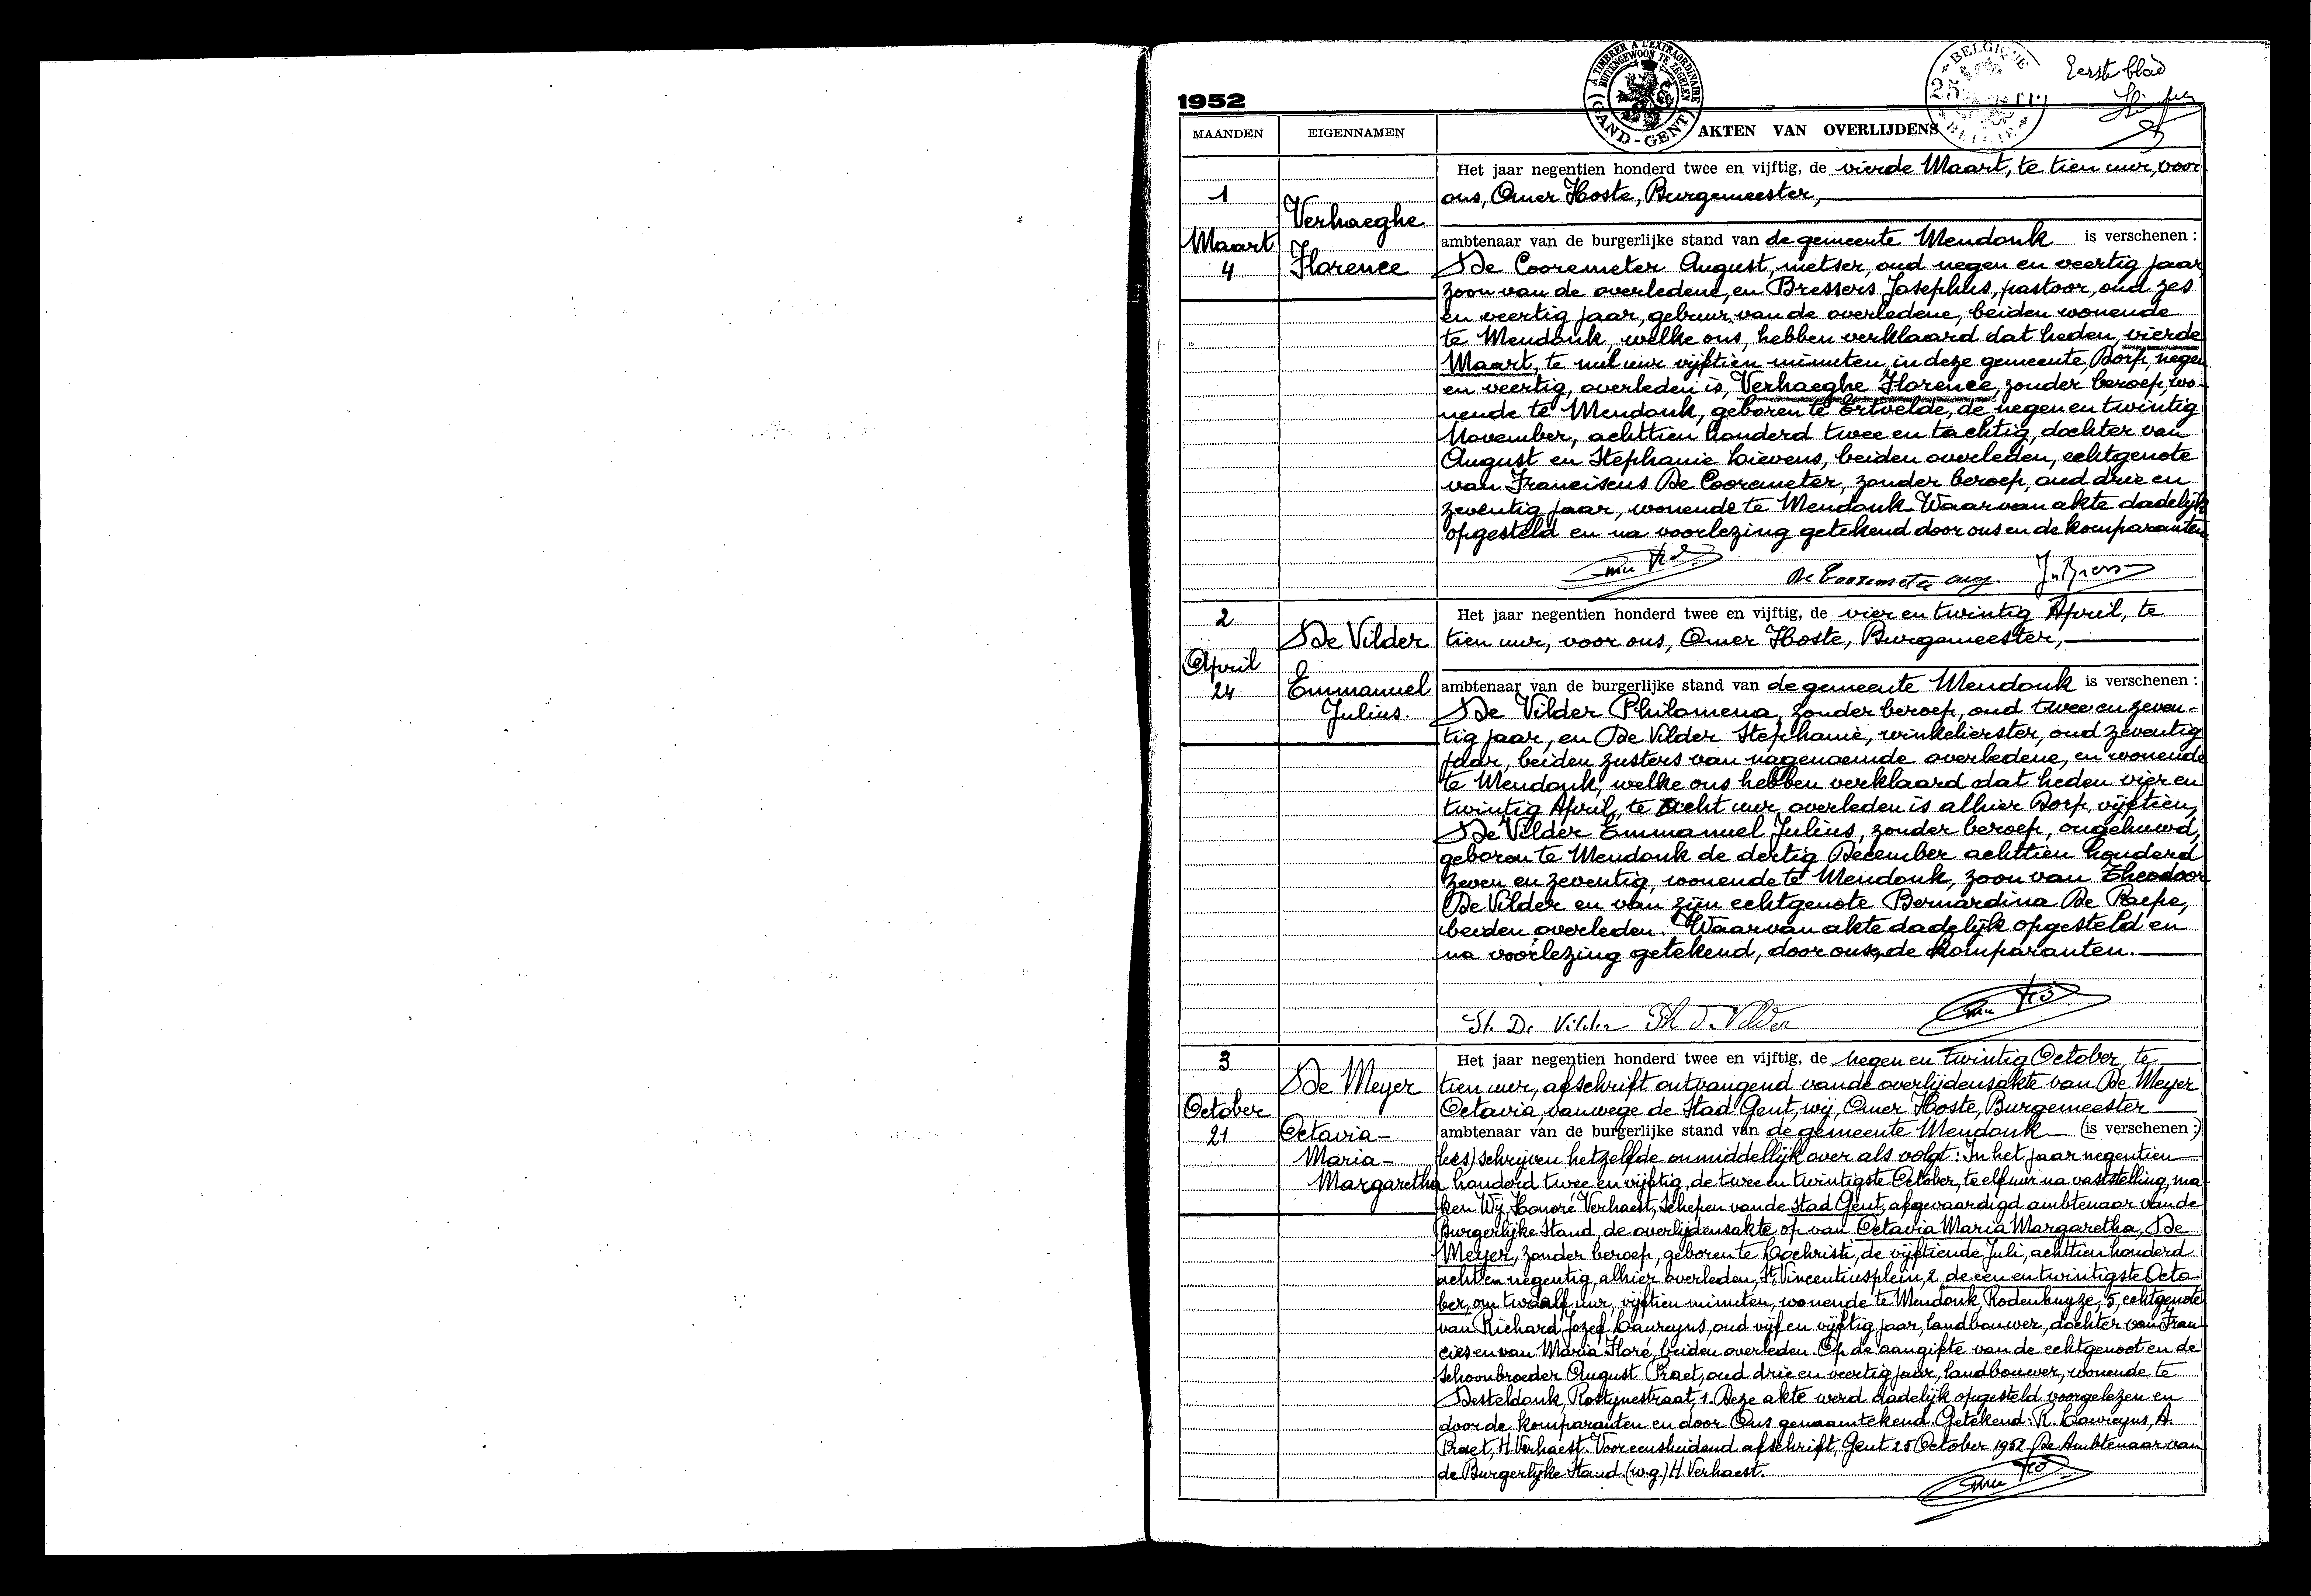 Eerste blad
1952
À TIMBRER A L'EXTRAORDINAIRE
BUITENGEWOON TE ZEGELEN
GAND - GENT
BELGIQUE
25
BELGIË
MAANDEN
EIGENNAMEN
AKTEN VAN OVERLIJDENS
1
Maart
4
Verhaeghe
Florence
Het jaar negentien honderd twee en vijftig, de vierde Maart, te tien uur, voor
ons, Omer Hoste, Burgemeester,
ambtenaar van de burgerlijke stand van de gemeente Mendonk is verschenen :
De Cooremeter August, metser, oud negen en veertig jaar,
zoon van de overledene, en Bressers Josephus, pastoor, oud zes
en veertig jaar, gebuur van de overledene, beiden wonende
te Mendonk, welke ons, hebben verklaard dat heden, vierde
Maart, te nul uur vijftien minuten, in deze gemeente, Dorp, negen
en veertig, overleden is, Verhaeghe Florence, zonder beroep, wo-
nende te Mendonk, geboren te Ertvelde, de negen en twintig
November, achttien honderd twee en tachtig, dochter van
August en Stephanie Lievens, beiden overleden, echtgenote
van Franciscus De Cooremeter, zonder beroep, oud drie en
zeventig jaar, wonende te Mendonk. Waarvan akte dadelijk
opgesteld en na voorlezing getekend door ons en de komparanten.
De Cooremeter aug.
2
April
24
De Vilder
Emmanuel
Julius.
Het jaar negentien honderd twee en vijftig, de vier en twintig April, te
tien uur, voor ons, Omer Hoste, Burgemeester,
ambtenaar van de burgerlijke stand van de gemeente Mendonk is verschenen :
De Vilder Philomena, zonder beroep, oud twee en zeven-
tig jaar, en De Vilder Stephanie, winkelierster, oud zeventig
jaar, beiden zusters van nagenoemde overledene, en wonende
te Mendonk, welke ons hebben verklaard dat heden vier en
twintig April, te acht uur, overleden is alhier Dorp, vijftien,
De Vilder Emmanuel Julius, zonder beroep, ongehuwd,
geboren te Mendonk de dertig December achttien honderd
zeven en zeventig, wonende te Mendonk, zoon van Theodoor
De Vilder en van zijn echtgenote Bernardina De Paepe,
beiden overleden. Waarvan akte dadelijk opgesteld en
na voorlezing getekend, door ons, de komparanten.
St. De Vilder Ph De Vilder
3
October
21
De Meyer
Octavia-
Maria-
Margaretha
Het jaar negentien honderd twee en vijftig, de negen en twintig October, te
tien uur, afschrift ontvangend van de overlijdensakte van De Meyer
Octavia, vanwege de Stad Gent, wij, Omer Hoste, Burgemeester
ambtenaar van de burgerlijke stand van de gemeente Mendonk (is verschenen :)
lees) schrijven hetzelfde onmiddellijk over als volgt : In het jaar negentien
honderd twee en vijftig, de twee en twintigste October, te elf uur na vaststelling, ma-
ken Wij, Honoré Verhaest, Schepen van de Stad Gent, afgevaardigd ambtenaar van de
Burgerlijke Stand, de overlijdensakte op van Octavia Maria Margaretha, De
Meyer, zonder beroep, geboren te Lochristi, de vijftiende Juli, achttien honderd
acht en negentig, alhier overleden, St. Vincentiusplein, 2, de een en twintigste Octo-
ber, om twaalf uur, vijftien minuten, wonende te Mendonk, Rodenhuyze, 5, echtgenote
van Richard Jozef Laureyns, oud vijf en vijftig jaar, landbouwer, dochter van Fran-
cies en van Maria Floré, beiden overleden. Op de aangifte van de echtgenoot en de
schoonbroeder August Praet, oud drie en veertig jaar, landbouwer, wonende te
Desteldonk, Rostijnestraat, 1. Deze akte werd dadelijk opgesteld voorgelezen en
door de komparanten en door Ons genaamtekend. Getekend : R. Laureyns, A.
Praet, H. Verhaest. Voor eensluidend afschrift, Gent 25 October 1952. De Ambtenaar van
de Burgerlijke Stand. (w.g.) H. Verhaest.